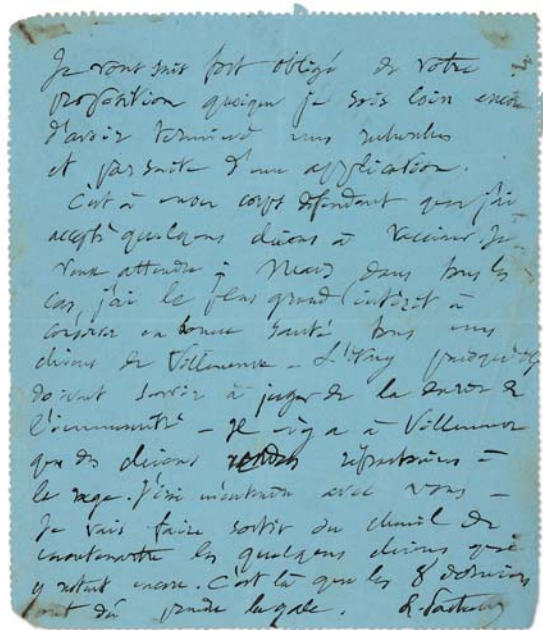 Je vous suis fort obligé de votre
proposition quoique je sois loin encore
d'avoir terminé mes recherches
et par suite d'une application.
C'est à mon corps défendant que j'ai
accepté quelques chiens à vacciner. Je
veux attendre; Mais dans tous les
cas, j'ai le plus grand intérêt à
conserver en bonne santé tous mes
chiens de Villeneuve - L'Etang puisqu'ils
doivent servir à juger de la durée de
l'immunité - Il n'y a à Villeneuve
que des chiens réfractaires à
la rage. J'irai m'entendre avec vous -
Je vais faire sortir du chenil de
les quelques chiens qui
y restent encore. C'est là que les 8 derniers
ont dû prendre la gale. L. Pasteur